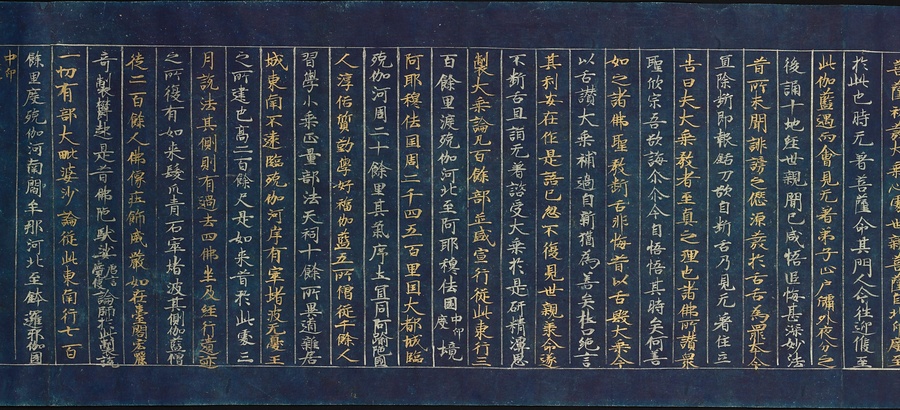 菩薩初誦大乘心處世親菩薩自北印度至
於此也時元著菩薩命其門人令往迎候至
此伽藍遇而會見元著弟子止戶牖外夜分之
後誦十地經世親聞已感悟追悔甚深妙法
昔所未聞誹謗之愆源發於舌舌為罪本今
宜除斷即執銛刀欲自斷舌乃見元著住立
告曰夫大乘教者至真之理也諸佛所讚衆
聖攸宗吾欲誨尒尒今自悟悟其時矣何善
如之諸佛聖教斷舌非悔昔以舌毀大乘今
以舌讚大乘補過自新猶為善矣杜口絕言
其利安在作是語已忽不復見世親承命遂
不斷舌旦詣元著諮受大乘於是研精覃思
製大乘論凡百餘部並盛宣行從此東行三
百餘里渡殑伽河北至阿耶穆佉國中印度境
阿耶穆佉国周二千四五百里国大都城臨
殑伽河周二十餘里其氣序土宜同阿踰陁國
人淳俗質勤學好福伽藍五所僧徒千餘人
習學小乘正量部法天祠十餘所異道雜居
城東南不遠臨殑伽河岸有窣堵波无憂王
之所建也高二百餘尺是如來昔於此處三
月說法其側則有過去四佛坐及經行遺迹
之所復有如來髮爪青石窣堵波其側伽藍僧
徒二百餘人佛像莊飾威嚴如在臺閣宏麗
奇製鬱起是昔佛陁馱娑唐言覺使論師於此製說
一切有部大毗婆沙論從此東南行七百
餘里度殑伽河南閻牟那河北至鉢邏耶伽國
中印